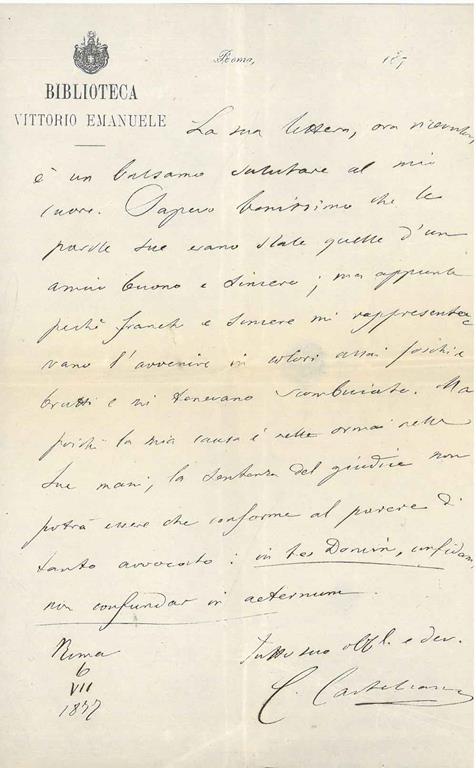 Roma, 187
BIBLIOTECA
VITTORIO EMANUELE
La sua lettera, ora ricevuta,
è un balsamo salutare al mio
cuore. Sapevo benissimo che le
parole sue erano state quelle d'un
amico buono e sincero; ma appunto
perchè franche e sincere mi rappresenta-
vano l'avvenire in colori assai foschi e
brutti e mi tenevano scombuiato. Ma
poichè la mia causa è nelle ormai nelle
sue mani, la sentenza del giudice non
potrà essere che conforme al parere di
tanto avvocato: in te Domin, confidam
non confundar in aeternum.
Roma
6
VII
1877
Tutto suo obbl. e dev.
C.